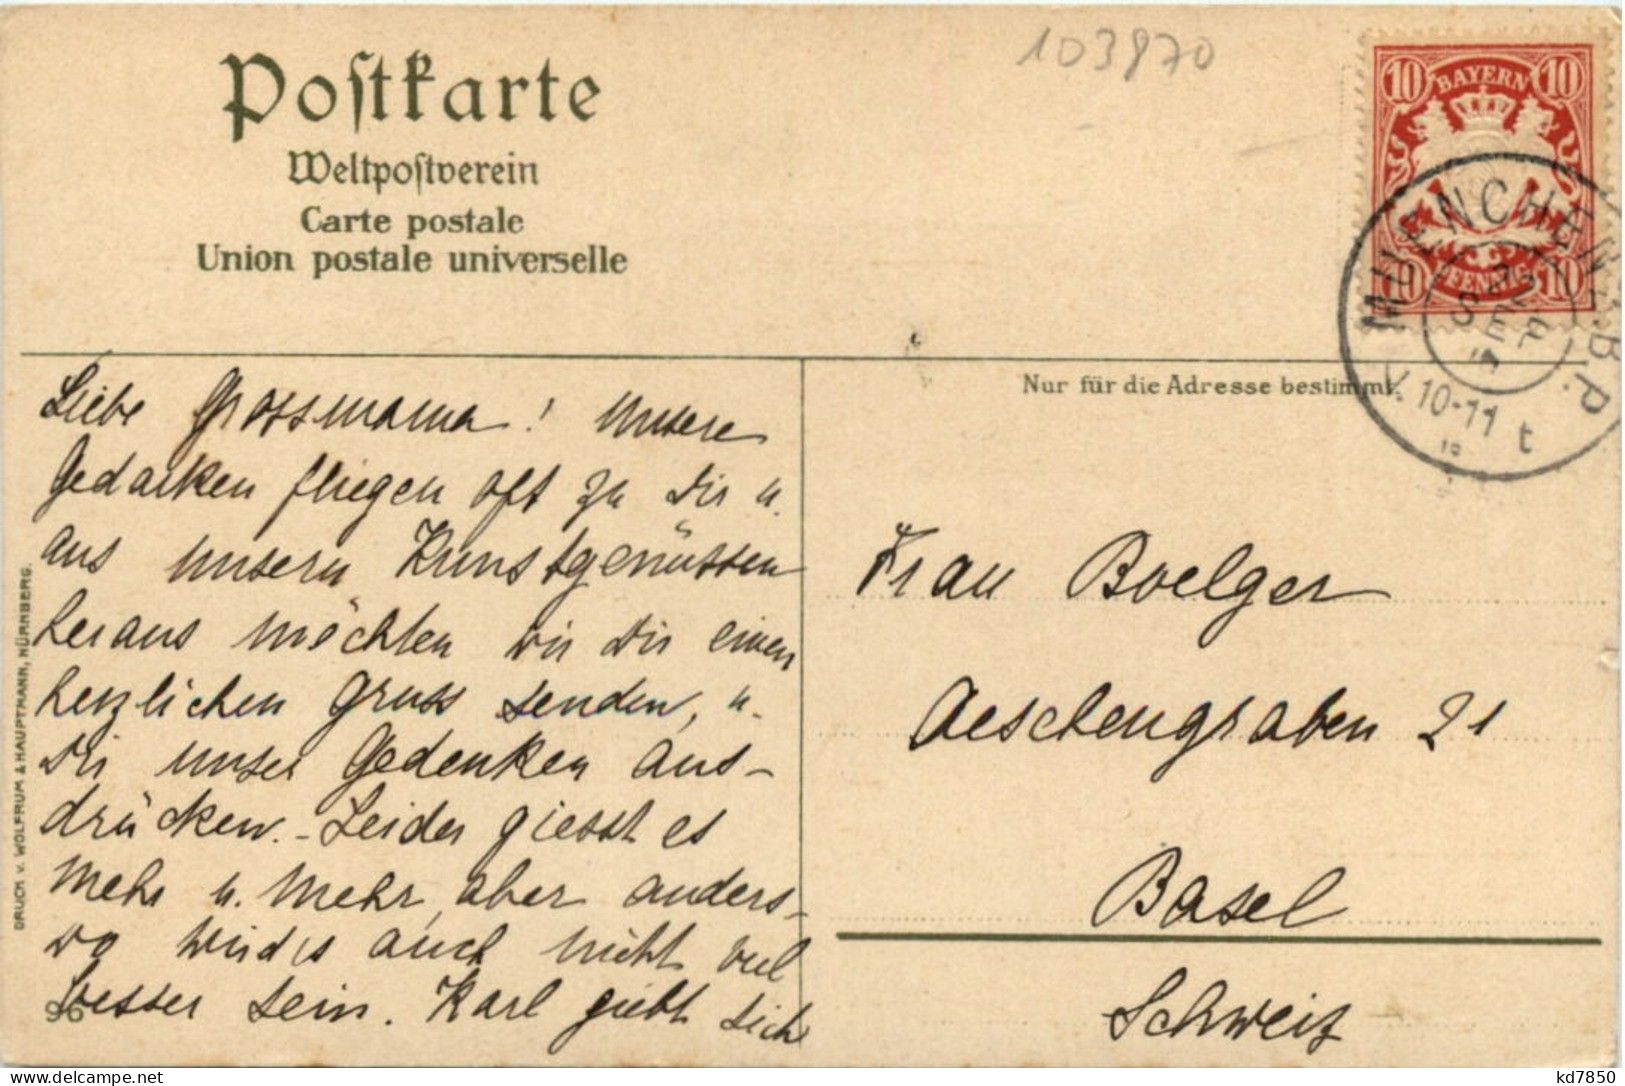 103870
Postkarte
Weltpostverein
Carte postale
Union postale universelle
10 BAYERN 10
10 PFENNIG 10
MUENCHEN B.P.
22
SEP
V. 10-11
t
Nur für die Adresse bestimmt.
Liebe Grossmama! Unsere
Gedanken fliegen oft zu Dir u.
aus unsern Kunstgenüssen
heraus möchten wir Dir einen
herzlichen Gruss senden, u.
Dir unser Gedenken aus-
drücken. - Leider giesst es
mehr u. mehr, aber anders-
wo wird's auch nicht viel
besser sein. Karl giebt sich
96
Frau Boelger
Aeschengraben 21
Basel
Schweiz
DRUCK v. WOLFRUM & HAUPTMANN, NÜRNBERG.
kd7850